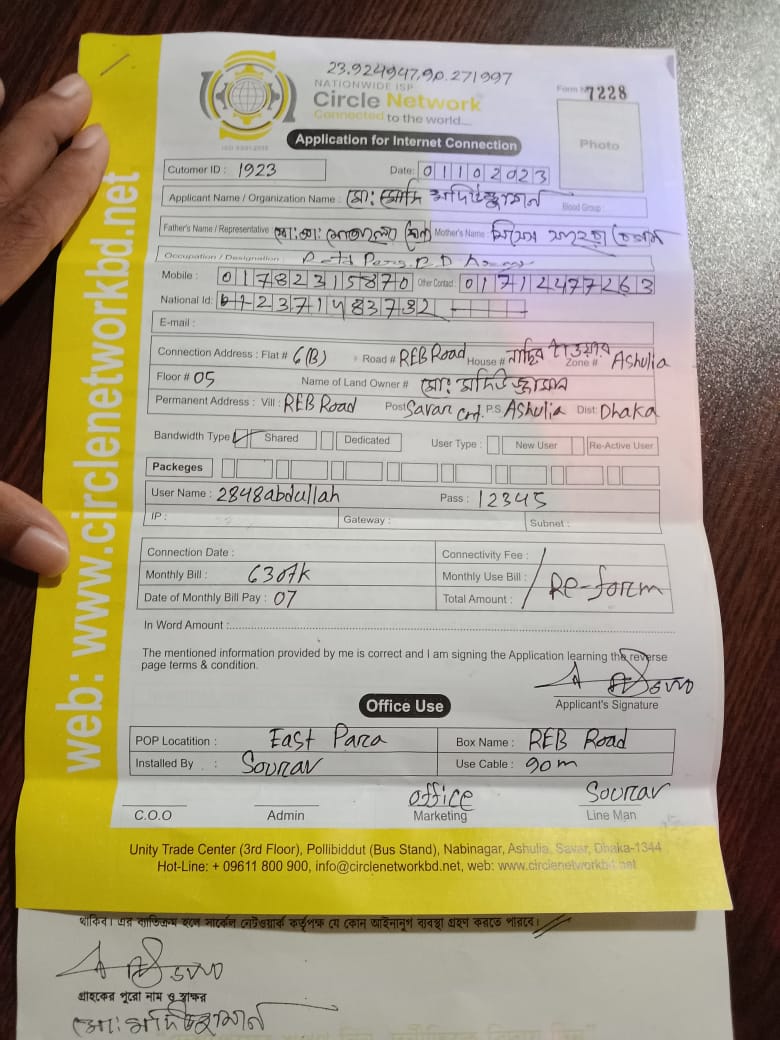 23.924947,90.271997
NATIONWIDE ISP
Circle Network
Connected to the world....
ISO 9001:2015
Form № 7228
Photo
Application for Internet Connection
Cutomer ID : 1923 Date: 01102023
Applicant Name / Organization Name : মো: মদিউজ্জামান Blood Group :
Father's Name / Representative Mother's Name :
Occupation / Designation :
Mobile : 01782315870 Other Contact : 01712477263
National Id:
E-mail :
Connection Address : Flat # 6(B) Road # REB Road House # নাছির টাওয়ার Zone # Ashulia
Floor # 05 Name of Land Owner # মো: মদিউজ্জামান
Permanent Address : Vill : REB Road Post Savar Cnt. P.S. Ashulia Dist: Dhaka
Bandwidth Type Shared Dedicated User Type : New User Re-Active User
Packeges
User Name : 2848abdullah Pass : 12345
IP : Gateway : Subnet :
Connection Date : Connectivity Fee :
Monthly Bill : 630Tk Monthly Use Bill : Re-form
Date of Monthly Bill Pay : 07 Total Amount :
In Word Amount :
The mentioned information provided by me is correct and I am signing the Application learning the reverse
page terms & condition.
Applicant's Signature
Office Use
POP Locatition : East Para Box Name : REB Road
Installed By : Sourav Use Cable : 90m
office Sourav
C.O.O Admin Marketing Line Man
Unity Trade Center (3rd Floor), Pollibiddut (Bus Stand), Nabinagar, Ashulia, Savar, Dhaka-1344
Hot-Line: + 09611 800 900, info@circlenetworkbd.net, web: www.circlenetworkbd.net
web: www.circlenetworkbd.net
থাকিব। এর ব্যতিক্রম হলে সার্কেল নেটওয়ার্ক কর্তৃপক্ষ যে কোন আইনানুগ ব্যবস্থা গ্রহণ করতে পারবে।
গ্রাহকের পুরো নাম ও স্বাক্ষর
মো: মদিউজ্জামান